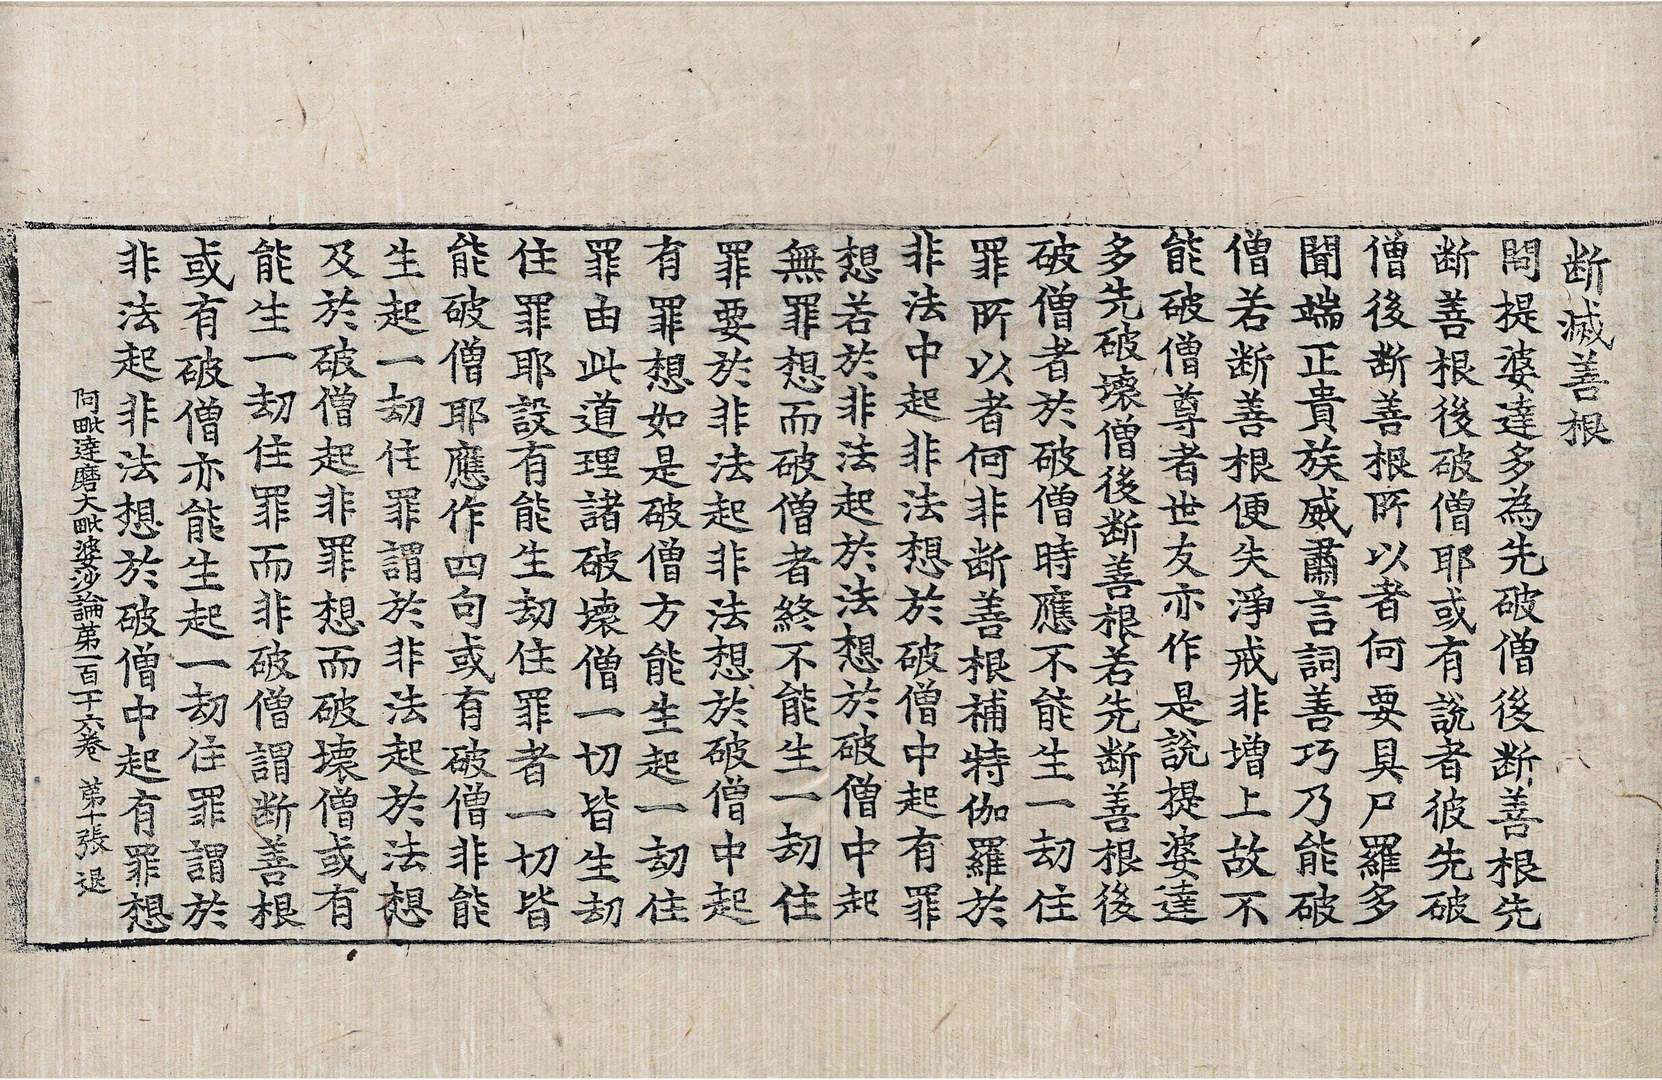 断滅善根
問提婆達多為先破僧後断善根先
断善根後破僧耶或有說者彼先破
僧後断善根所以者何要具尸羅多
聞端正貴族威肅言詞善巧乃能破
僧若断善根便失淨戒非增上故不
能破僧尊者世友亦作是說提婆達
多先破壞僧後断善根若先断善根後
破僧者於破僧時應不能生一劫住
罪所以者何非断善根補特伽羅於
非法中起非法想於破僧中起有罪
想若於非法起於法想於破僧中起
無罪想而破僧者終不能生一劫住
罪要於非法起非法想於破僧中起
有罪想如是破僧方能生起一劫住
罪由此道理諸破壞僧一切皆生劫
住罪耶設有能生劫住罪者一切皆
能破僧耶應作四句或有破僧非能
生起一劫住罪謂於非法起於法想
及於破僧起非罪想而破壞僧或有
能生一劫住罪而非破僧謂断善根
或有破僧亦能生起一劫住罪謂於
非法起非法想於破僧中起有罪想
阿毗達磨大毗婆沙論第一百十六卷 第十張 退